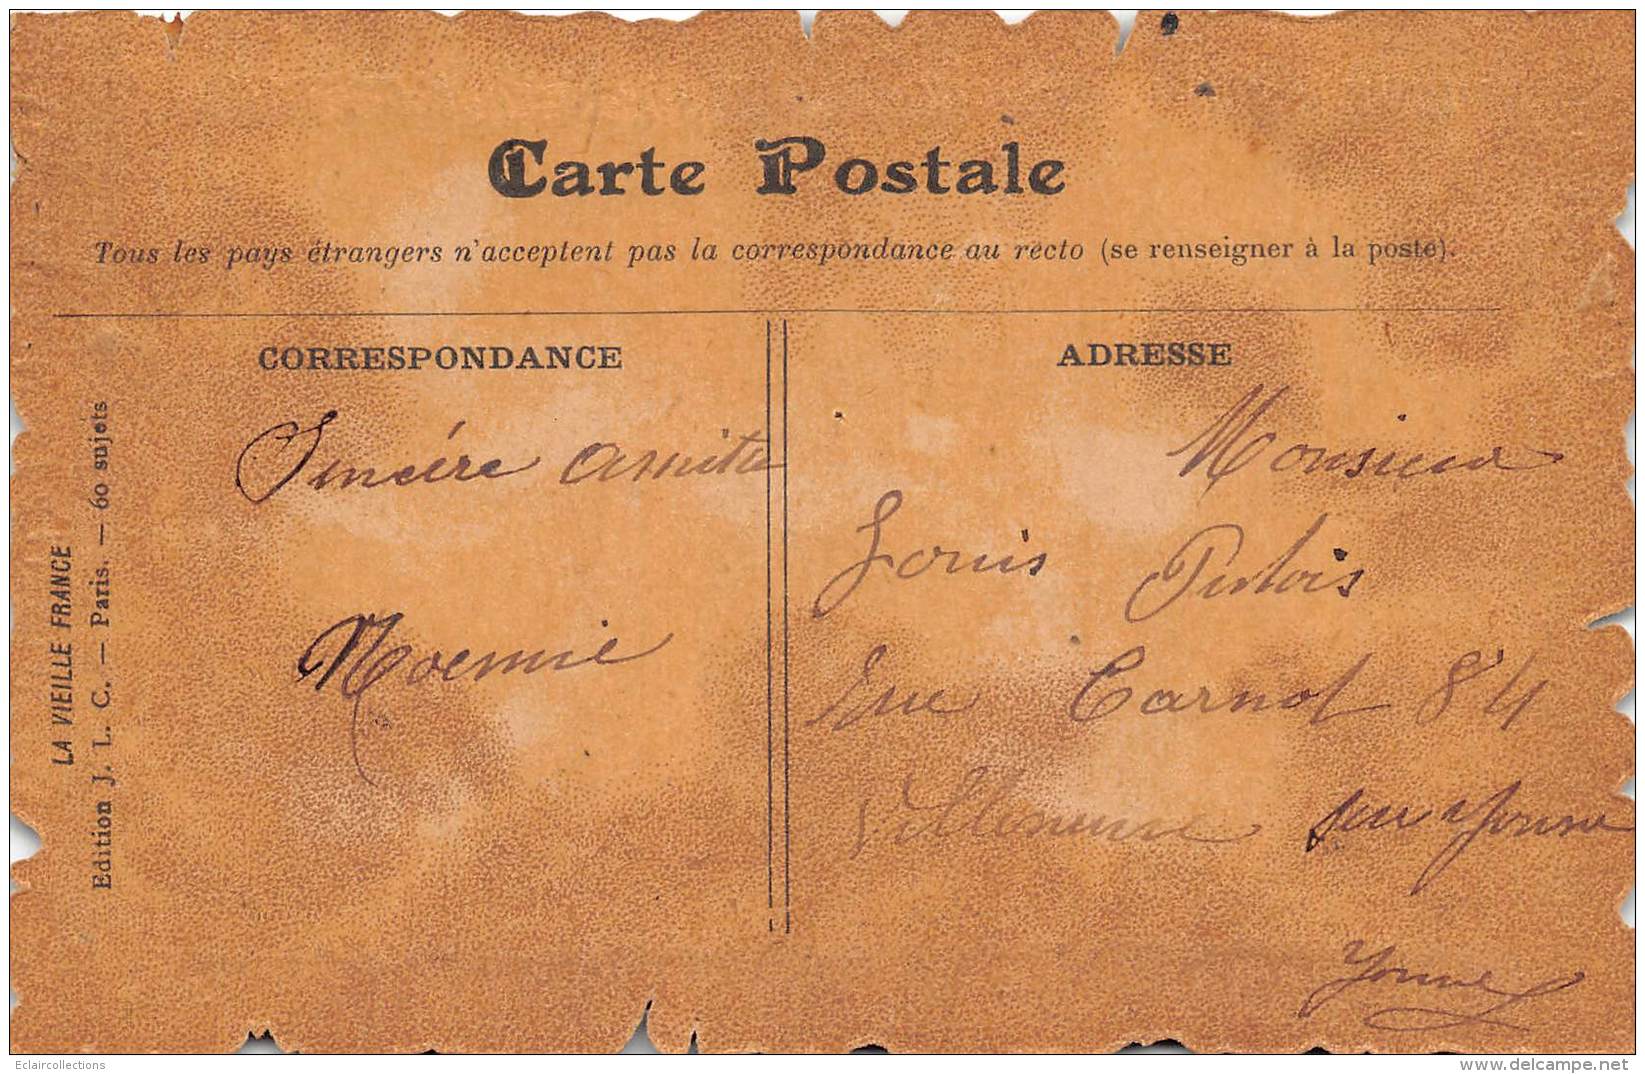 Carte Postale
Tous les pays étrangers n'acceptent pas la correspondance au recto (se renseigner à la poste).
CORRESPONDANCE
Sincére amitié
Noemie
ADRESSE
Monsieur
Louis
Rue Carnot 84
Villeneuve sur Yonne
Yonne
LA VIEILLE FRANCE
Edition J. L. C. — Paris. — 60 sujets
Eclaircollections
www.delcampe.net